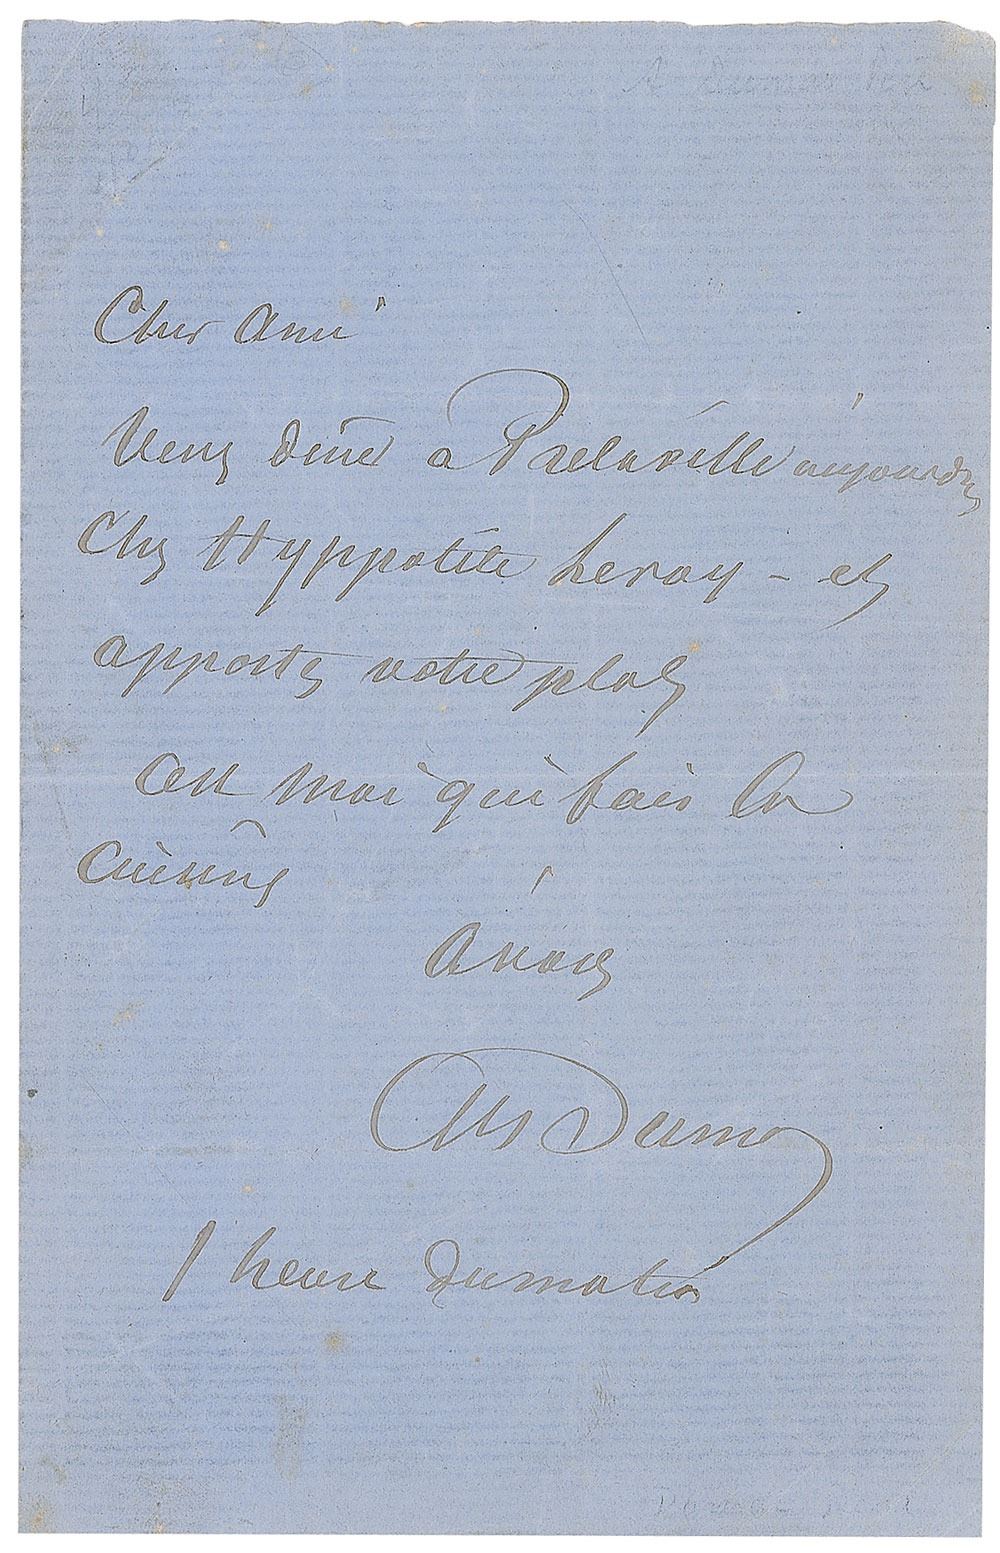 Cher ami
Venez diner à aujourd'hui
chez Hyppolite Leroy – et
apportez votre plat
c'est moi qui fais la
cuisine
à vous
Alex Dumas
1 heure du matin